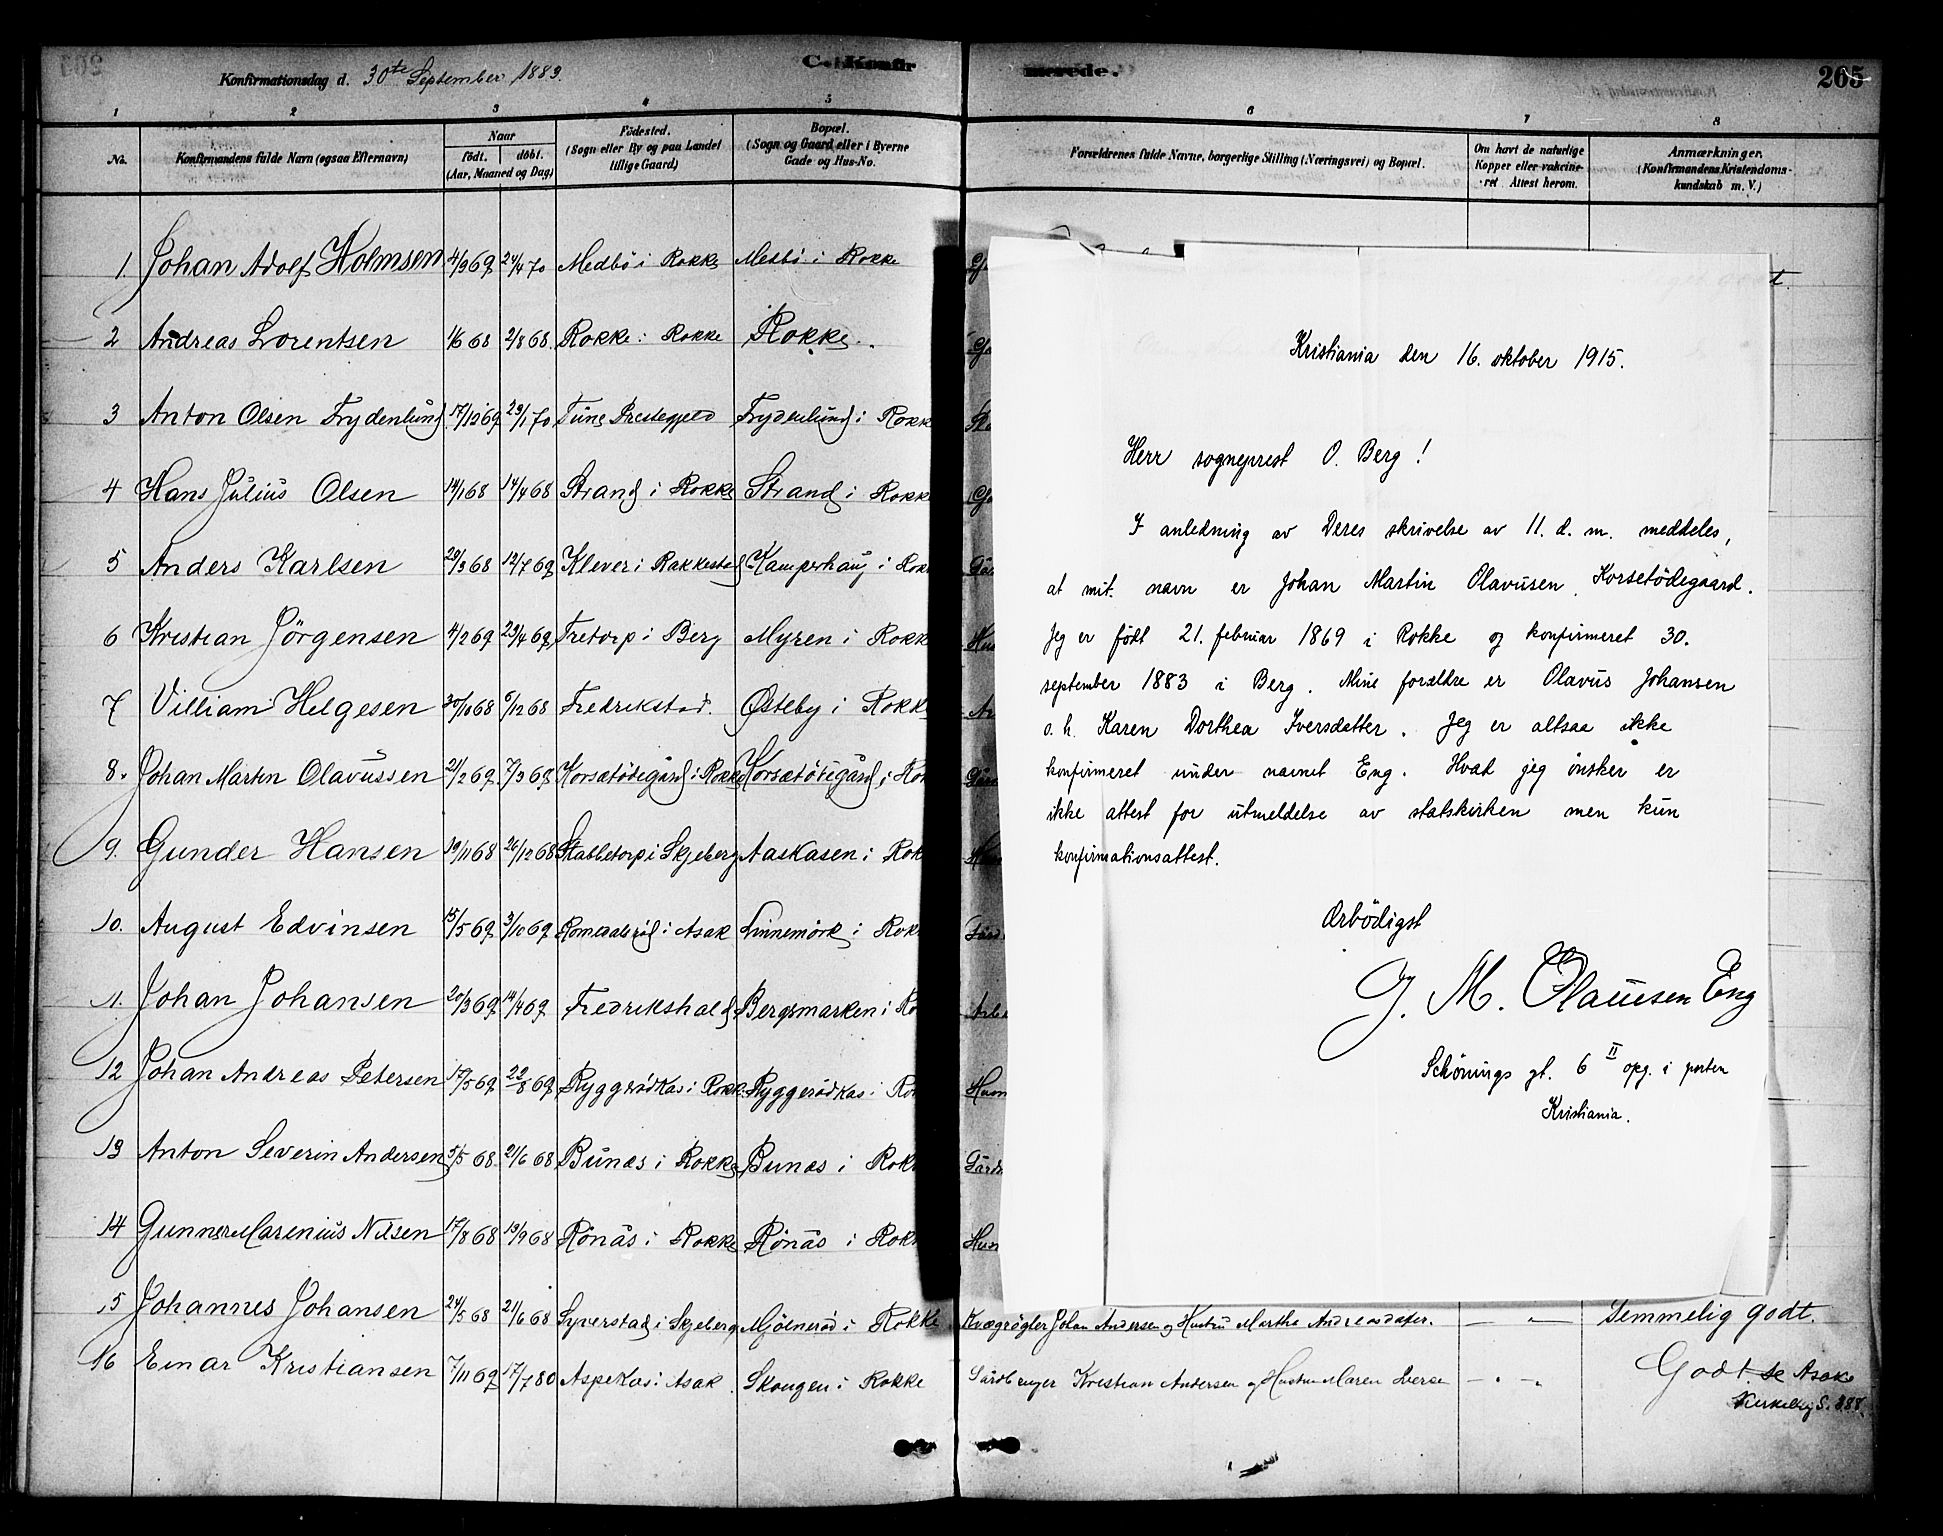 Konfirmationsdag d. 30te September 1883.
C. Konfir
merede.
265
1 2 3 4 5 6 7 8
No.
Konfirmandens fulde Navn (ogsaa Efternavn)
Naar
födt. döbt.
(Aar, Maaned og Dag)
Födested.
(Sogn eller By og paa Landet
tillige Gaard)
Bopæl.
(Sogn og Gaard eller i Byerne
Gade og Hus-No.
Forældrenes fulde Navne, borgerlige Stilling (Næringsvei) og Bopæl.
Om havt de naturlige
Kopper eller vakcine-
ret Attest herom.
Anmærkninger.
(Konfirmandens Kristendoms-
kundskab m. V.)
1. Johan Adolf Holmsen 4/9 69 24/4 70 Medbö i Rokke Medbö i Rokke
2 Andreas Lorentsen 1/6 68 2/8 68. Rokke i Rokke Rokke
3 Anton Olsen Frydenlund 17/12 69 23/1 70 Tune Prestegjeld Frydenlund i Rokk
4 Hans Julius Olsen 14/1 68 14/4 68 Strand i Rokke Strand i Rokk
5 Anders Karlsen 29/3 68 12/7 69 Klever i Rakkestad Kamperhaug i Rok
6 Kristian Jörgensen 4/2 69 23/4 69 Tretorp i Berg Myren i Rokk
7 Villiam Helgesen 30/10 68 6/12 68 Fredrikstad. Østeby i Rokk
8. Johan Martin Olavussen 21/2 69. 7/3 69 Korsetödegård i Rokke Korsætödegård i Rok
9. Gunder Hansen 19/11 68 26/12 68 Stabbetorp i Skjeberg Aaskasen i Rok
10. August Edvinsen 15/5 69 3/10 69 i Asak Linnemörk i Rok
11. Johan Johansen 20/3 69 14/4 69 Fredrikshald Bergsmarken i Ro
12 Johan Andreas Petersen 15/5 69 22/8 69 Ryggerödkas i Rokk Ryggerödkas i Ro
13 Anton Severin Andersen 3/5 68. 21/6 68 Bunæs i Rokke Bunæs i Rok
14 Gunner Marenius Nilsen 17/8 68 13/9 68 Rönäs i Rokke Rönäs i Rok
15 Johannes Johansen 24/5 68 21/6 68 Syverstad i Skjeberg Mjölneröd i Rokke Johan Andersen og Hustru Martha Andreasdater. — " — Temmelig godt.
16 Einar Kristiansen 7/11 69 17/7 80 Aspekas i Asak. Skougen i Rokke Gårdbruger Kristian Andersen og Hustru Maren Iverse — " — Godt se Asak
Kirkebog S. 388.
Kristiania den 16. oktober 1915.
Herr sogneprest O. Berg!
I anledning av Deres skrivelse av 11. d. m. meddeles,
at mit navn er Johan Martin Olavusen Korsetödegaard.
Jeg er födt 21. februar 1869 i Rokke og konfirmeret 30.
september 1883 i Berg. Mine forældre er Olavus Johansen
o. h. Karen Dorthea Iversdatter. Jeg er altsaa ikke
konfirmeret under navnet Eng. Hvad jeg önsker er
ikke attest for utmeldelse av statskirken men kun
konfirmationsattest.
Ærbödigst
J. M. Olausen Eng
Schönings gt. 6 II opg. i porten
Kristiania.